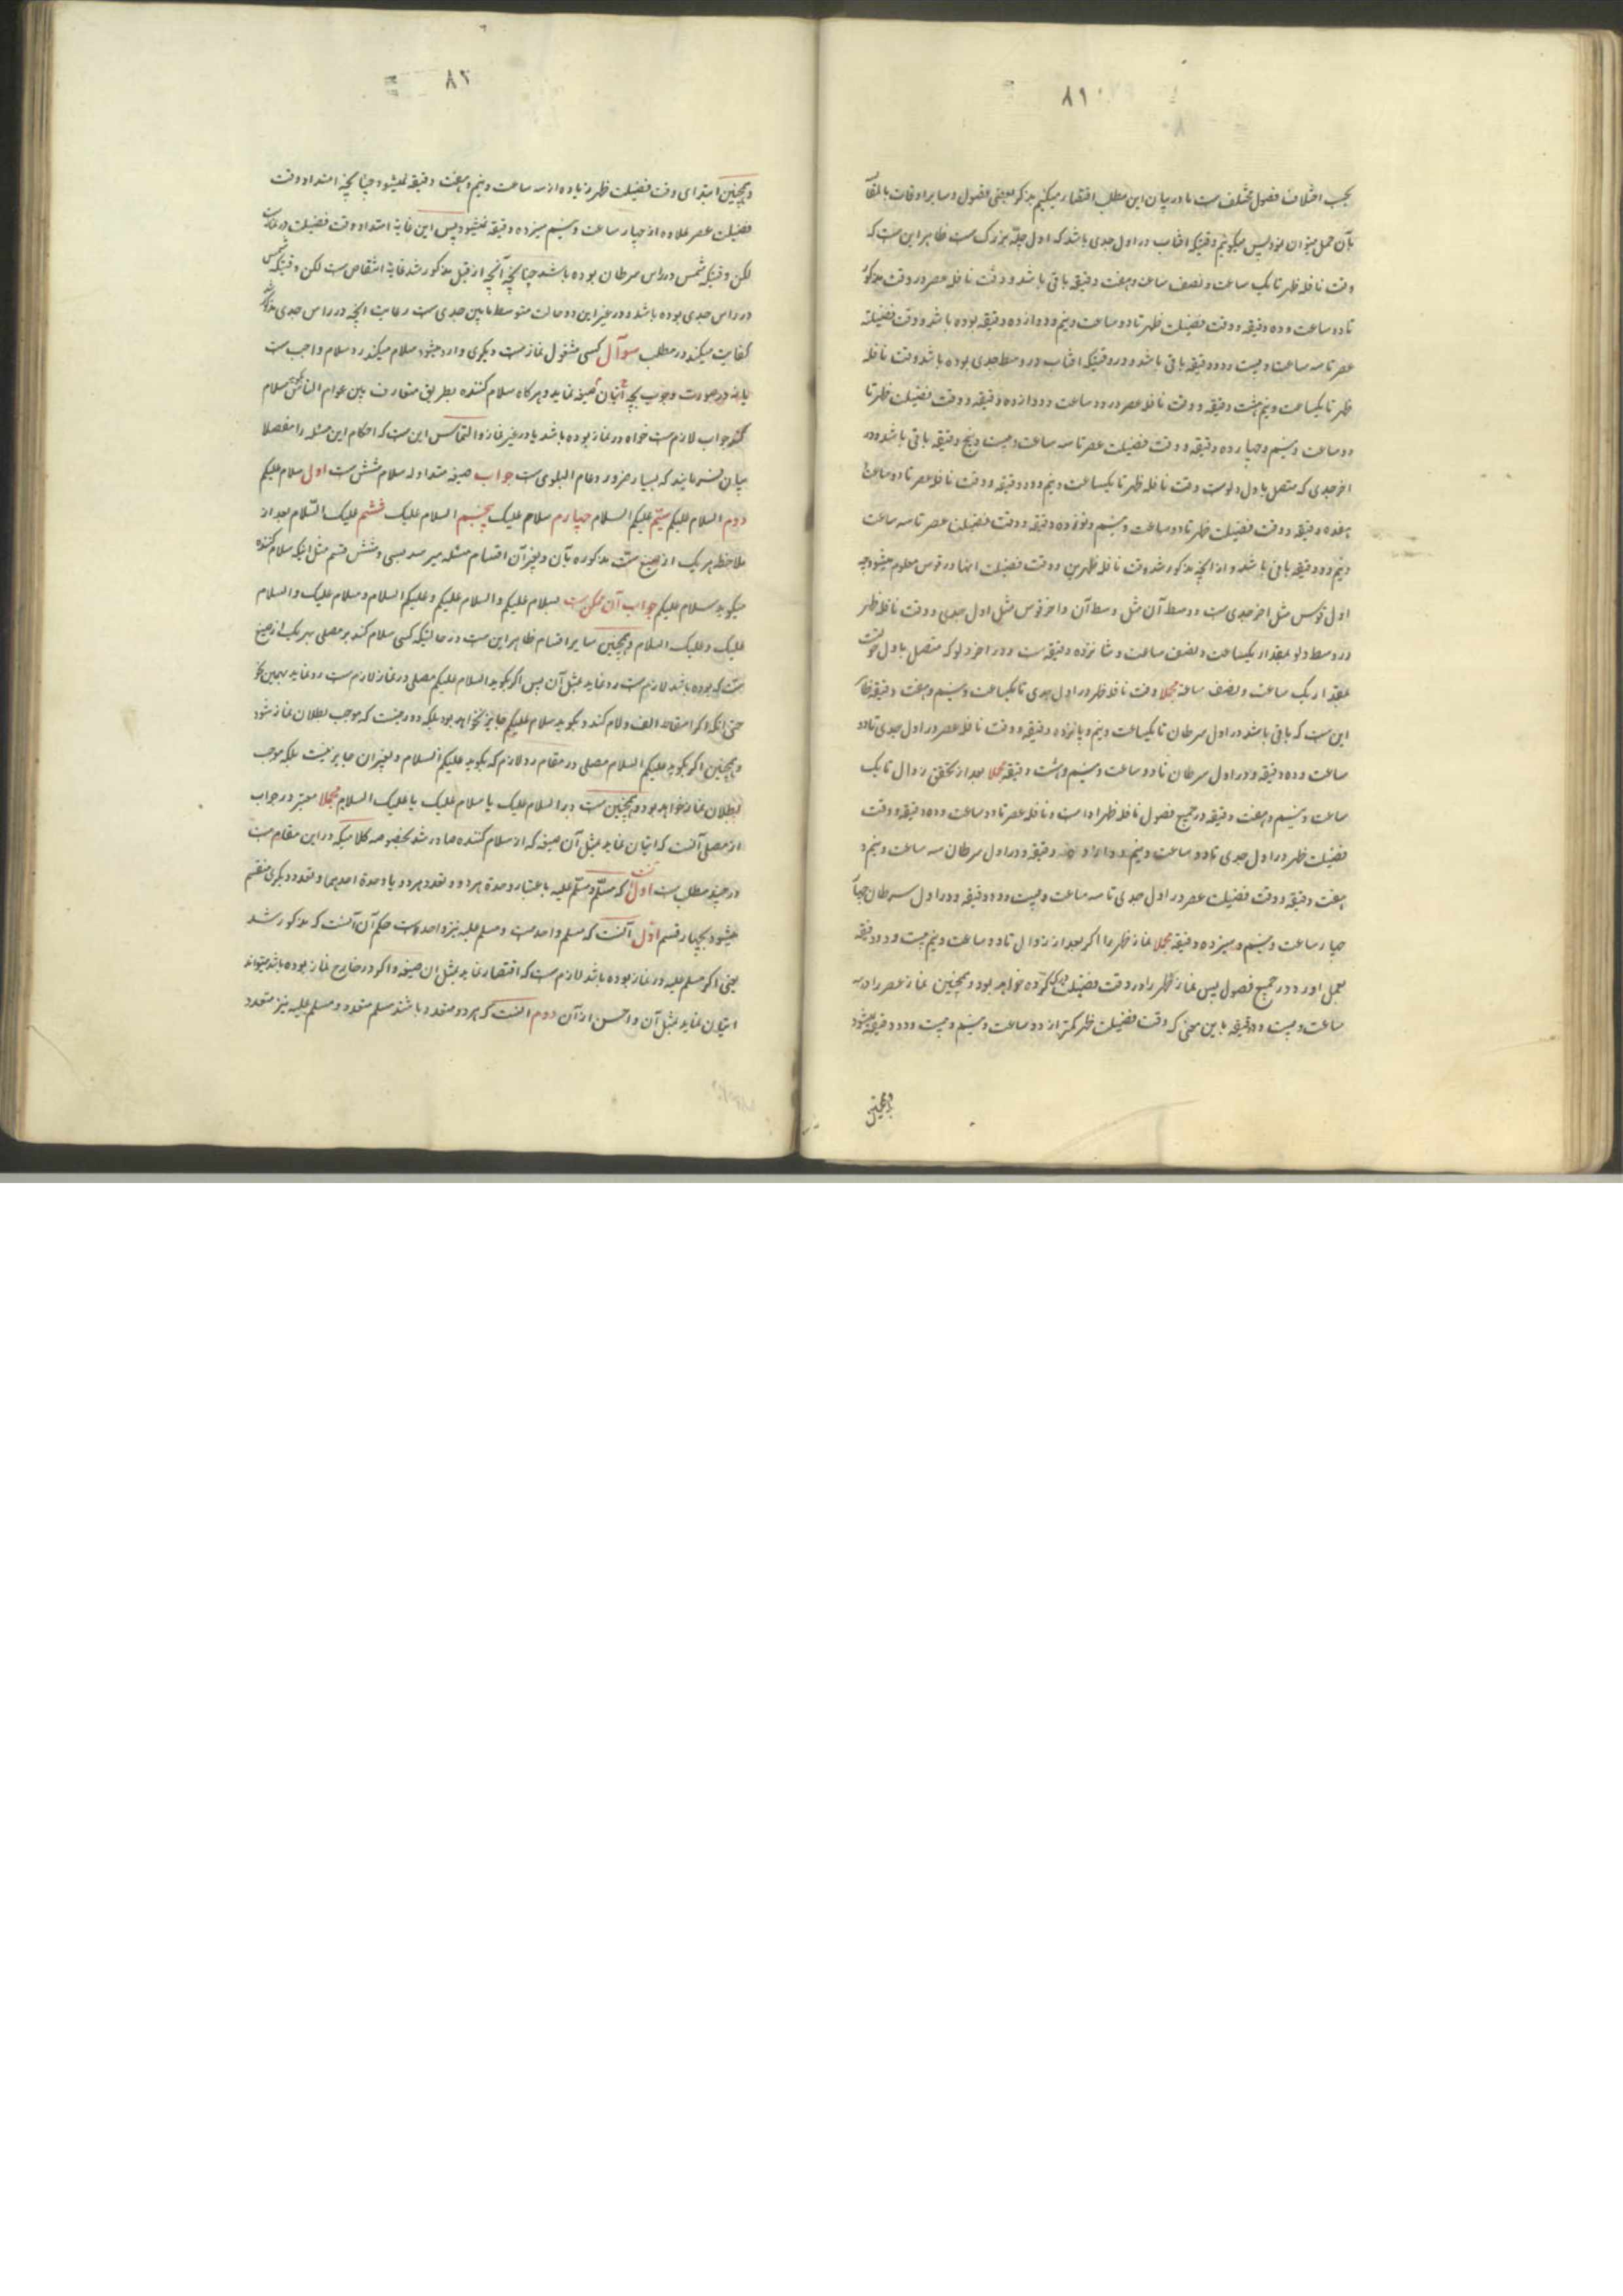 ۸۱
بحسب اختلاف فصول مختلف است ما در بیان این مطلب اقتصار میکنیم بذکر بعضی فصول و سایر اوقات بالمقا
بآن حمل میتوان نمود پس میکوئیم وقتیکه افتاب در اول جدی باشد که اول چلّه بزرک است ظاهر این است که
وقت نافله ظهر تا یک ساعت و نصف ساعت و هفت دقیقه باقی باشد و وقت نافله عصر در وقت مذکور
تا دو ساعت و ده دقیقه و وقت فضیلت ظهر تا دو ساعت و نیم و دوازده دقیقه بوده باشد و وقت فضیلت
عصر تا سه ساعت و بیست و دو دقیقه باقی باشد و در وقتیکه افتاب در وسط جدی بوده باشد وقت نافله
ظهر تا یکساعت و نیم هشت دقیقه و وقت نافله عصر در دو ساعت و دوازده دقیقه و وقت فضیلت ظهر تا
دو ساعت و نیم و چهارده دقیقه و وقت فضیلت عصر تا سه ساعت و بیست و پنج دقیقه باقی باشد و در
اخر جدی که متصل باول دلوست وقت نافله ظهر تا یکساعت و نیم و دو دقیقه و وقت نافله عصر تا دو ساعت
هفده دقیقه و وقت فضیلت ظهر تا دو ساعت و نیم و نوزده دقیقه و وقت فضیلت عصر تا سه ساعت
و نیم و دو دقیقه باقی باشد و از انچه مذکور شد وقت نافله ظهرین و وقت فضیلت انها در قوس معلوم میشود چه
اول قوس مثل اخر جدی است و وسط آن مثل وسط آن و اخر قوس مثل اول جدی و وقت نافله ظهر
در وسط دلو بمقدار یکساعت و نصف ساعت و شانزده دقیقه است و در اخر دلو که متصل باول حوت
بمقدار یک ساعت و نصف ساعت مجملا وقت نافله ظهر در اول جدی تا یکساعت و نیم و هفت دقیقه
این است که باقی باشد در اول سرطان تا یکساعت و نیم و پانزده دقیقه و وقت نافله عصر در اول جدی تا دو
ساعت و ده دقیقه و در اول سرطان تا دو ساعت و نیم و هشت دقیقه مجملا بعد از تحقق زوال تا یک
ساعت و نیم و هفت دقیقه در جمیع فصول نافله ظهر اداست و نافله عصر تا دو ساعت و ده دقیقه و وقت
فضیلت ظهر در اول جدی تا دو ساعت و نیم و دوازده دقیقه و در اول سرطان سه ساعت و نیم و
هفت دقیقه و وقت فضیلت عصر در اول جدی تا سه ساعت و بیست و دو دقیقه و در اول سرطان
چهار ساعت و نیم و سیزده دقیقه مجملا نماز ظهر را اکر بعد از زوال تا دو ساعت و نیم بیست و دو دقیقه
بعمل اورد در جمیع فصول پس نماز ظهر را در وقت فضیلت کرده خواهد بود و همچنین نماز عصر را در سه
ساعت و بیست و دو دقیقه باین معنی که وقت فضیلت ظهر کمتر از دو ساعت و نیم و بیست و دو دقیقه نمیشود
و همچنین
۸۲
و همچنین ابتدای وقت فضیلت ظهر زیاده از سه ساعت و نیم و هفت دقیقه نمیشود چنانچه امتداد وقت
فضیلت عصر علاوه از چهار ساعت و نیم سیزده دقیقه نمیشود پس این غایة امتداد وقت فضیلت در
لکن وقتیکه شمس در راس سرطان بوده باشد چنانچه آنچه از قبل مذکور شد غایة انتقاص است لکن وقتیکه شمس
در راس جدی بوده باشد و در غیر این دو حالت متوسط مابین حدی است رعایت انچه در راس جدی مذکور شد
کفایت میکند در مطلب سوآل کسی مشغول نماز است دیکری وارد میشود سلام میکند رد سلام واجب است
یا نه در صورت وجوب بچه اتیان صیغه نماید و هرکاه سلام کننده بطریق متعارف بین عوام الناس سلام
کند جواب لازم است خواه در نماز بوده باشد یا در غیر نماز و التماس این است که احکام این مسئله را مفصلا
بیان فرمایند که بسیار ضرور و عام البلوی است جواب صیغه متداوله سلام شش است اول سلام علیکم
دوم السلام علیکم سیّم علیکم السلام چهارم سلام علیک پنجم السلام علیک ششم علیک السّلام بعد از
ملاحظه هر یک از صیغ ستّه مذکوره بآن و بغیر آن اقسام مسئله میرسد بسی و شش قسم مثل اینکه سلام کننده
میکوید سلام علیکم جواب آن ممکن است بسلام علیکم و السلام علیکم و علیکم السلام و سلام علیک و السلام
علیک و علیک السلام و همچنین سایر اقسام ظاهر این است در حالتیکه کسی سلام کند بر مصلی بهر یک از صیغ
ستّه که بوده باشد لازم است رد نماید بمثل آن پس اکر بکوید السلام علیکم مصلی در نماز لازم است رد نماید بهمین نحو
حتی انکه اکر اسقاط الف و لام کند و بکوید سلام علیکم جایز نخواهد بود بلکه دور نیست که موجب بطلان نماز شود
و همچنین اکر بکوید علیکم السلام مصلی در مقام رد لازم که بکوید علیکم السلام و بغیر ان جایز نیست بلکه موجب
بطلان نماز خواهد بود و همچنین است در السلام علیک یا سلام علیک یا علیک السلام مجملا معتبر در جواب
از مصلی آنست که اتیان نماید بمثل آن صیغه که از سلام کننده صادر شد بخصوصه کلامیکه در این مقام هست
در چند مطلب است اول آنست که مسلّم و مسلّم علیه باعتبار وحدة هر دو و تعدد هر دو یا وحدة احدهما و تعدد دیکری منقسم
میشود بچهار قسم اوّل آنست که مسلم واحد است و مسلم علیه نیز واحد است حکم آن آنست که مذکور شد
یعنی اکر مسلم علیه در نماز بوده باشد لازم است که اقتصار نماید بمثل ان صیغه و اکر در خارج نماز بوده باشد میتواند
اتیان نماید بمثل آن و احسن از آن دوم انست که هر دو متعدد باشند مسلم متعدد و مسلم علیه نیز متعدد